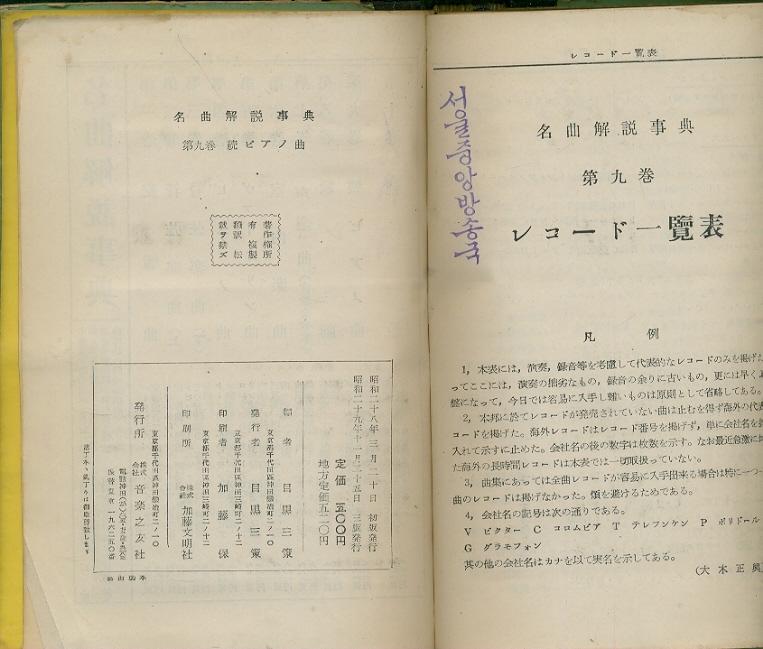 名曲解説事典
第九巻 続ピアノ曲
著作権所
有複製
翻訳転
載ヲ禁ズ
昭和二十八年三月二十日 初版発行
昭和二十九年十一月二十五日 三版発行
定価 五〇〇円
地方定価五二〇円
編者 目黒三策
東京都千代田区神田錦治町二ノ一〇
発行者 目黒三策
東京都千代田区神田三崎町二ノ十二
印刷者 加藤 保
東京都千代田区神田三崎町二ノ十二
印刷所 株式会社 加藤文明社
東京都千代田区神田 町二ノ一〇
発行所 株式会社 音楽之友社
電話神田
振替東京 一九六二五〇番
レコード一覽表
서울중앙방송국
名曲解説事典
第九巻
レコード一覽表
凡例
1, 本表には，演奏，録音等を考慮して代表的なレコードのみを掲げ
ってここには，演奏の拙劣なもの，録音の余りに古いもの，更には早く
盤になって，今日では容易に入手し難いものは原則として省略してある。
2, 本邦に於てレコードが発売されていない曲は止むを得ず海外の代表
コードを掲げた。海外レコードはレコード番号を掲げず，単に会社名を
入れて示すに止めた。会社名の後の数字は枚数を示す。なお最近急激に
た海外の長時間レコードは本表では一切取扱っていない。
3, 曲集にあっては全曲レコードが容易に入手出来る場合は特に一つ一
曲のレコードは掲げなかった。煩を避けるためである。
4, 会社名の記号は次の通りである。
V ビクター C コロムビア T テレフンケン P ポリドール
G グラモフォン
其の他の会社名はカナを以て実名を示してある。
(大木正興